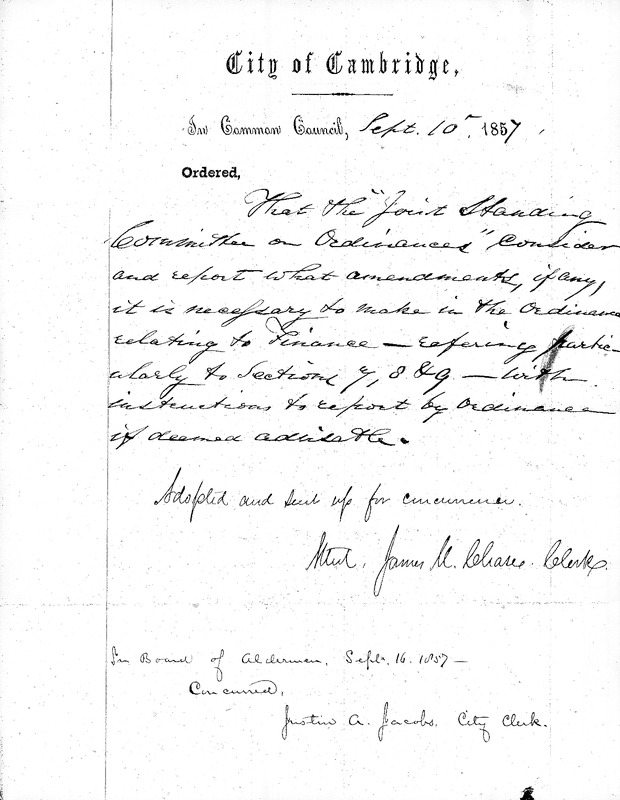 City of Cambridge,
In Common Council, Sept. 10, 1857,
Ordered,
That the "Joint Standing
Committee on Ordinances" consider
and report what amendments, if any,
it is necessary to make in the Ordinance
relating to Finance — refering partic-
ularly to Sections 7, 8 & 9 — with
instructions to report by Ordinance
if deemed advisable.
Adopted and sent up for concurrence.
Attest, James M. Chase. Clerk.
In Board of Aldermen, Sept. 16. 1857 —
Concurred,
Justin A. Jacobs, City Clerk.